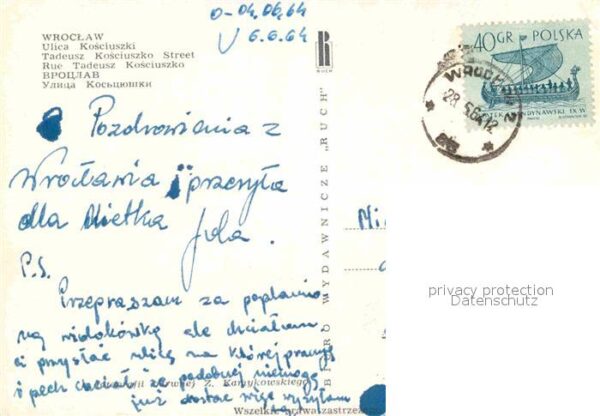 O - 04.06.64
V 6.6.64
WROCŁAW
Ulica Kościuszki
Tadeusz Kościuszko Street
Rue Tadeusz Kościuszko
ВРОЦЛАВ
Улица Косьцюшки
RUCH
BIURO WYDAWNICZE "RUCH"
40GR POLSKA
WROCŁAW 2
28.5.64.12
Pozdrowienia z
Wrocławia przesyła
dla Mietka
Jola.
P.S.
Przepraszam za poplamio
ną widokówkę ale chciałam
ci przysłać ulicę na której pracuję
i pech chciał że podobnej nie mogę
już dostać więc wysyłam
Z. Kamykowskiego
Wszelkie prawa zastrzeż
Mi
privacy protection
Datenschutz